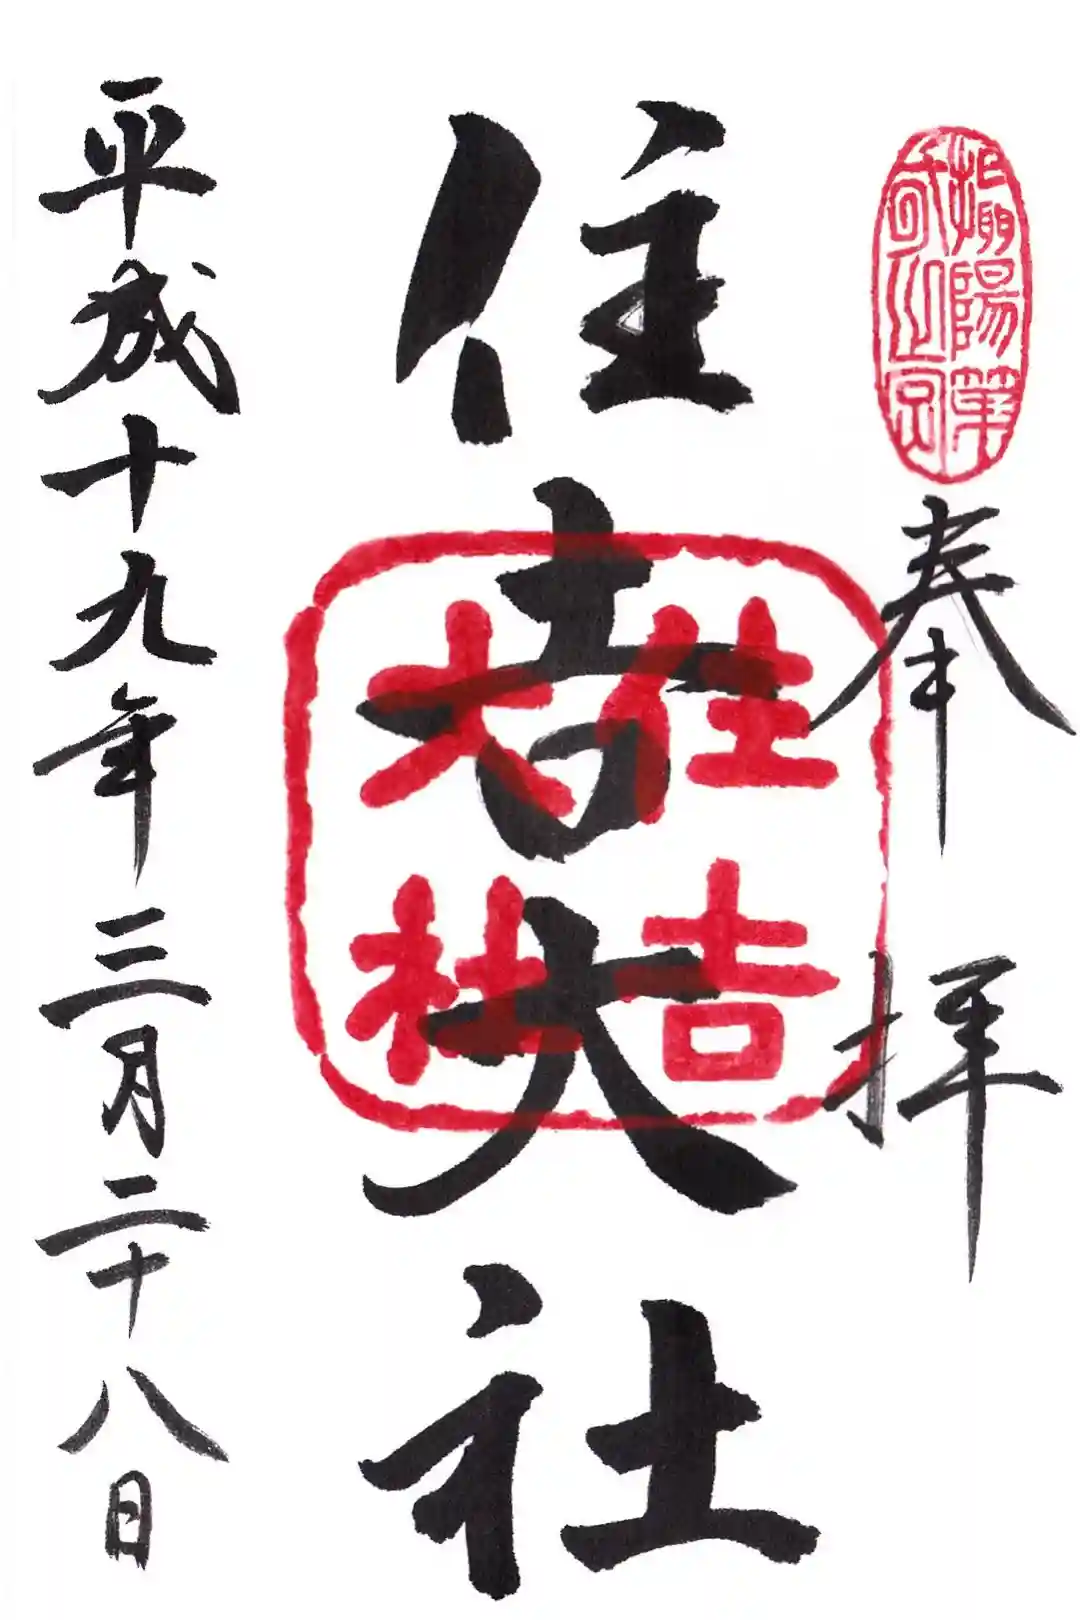 奉拝
住吉大社
住吉
大社
平成十九年三月二十八日